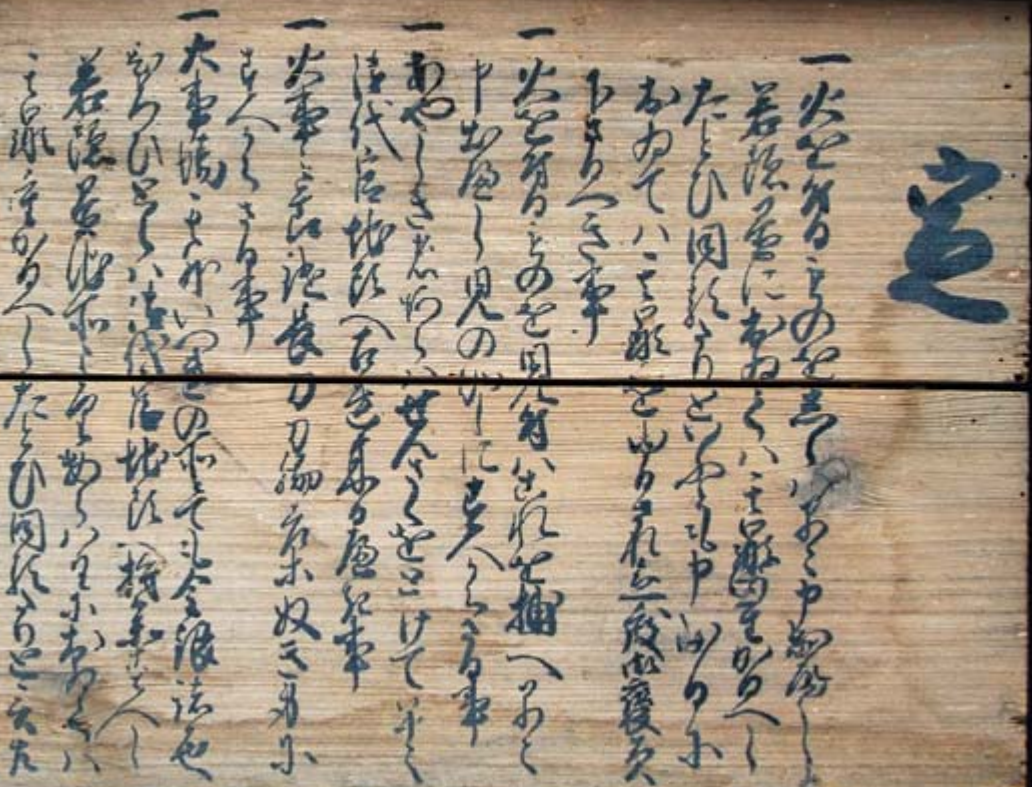 定
一火を付るものをしらハ早々申出へし
若隠置におゐてハ其罪重かるへし
たとひ同類たりといふとも申出るに
おゐてハ其罪をゆるされ急度御褒美
下さるへき事
一火を付るものを見付ハこれを捕へ早々
申出へし見のかしにすへからさる事
一あやしき者あらハせんさくをとけて早々
御代官地頭へ召連来るへき事
一火事之節鑓長刀刀脇差等ぬき身に
すへからさる事
一火事場其外いつれの所にても金銀諸色
ひろひとらハ御代官地頭へ持参すへし
若隠置他所よりあらハるにおゐてハ
其罪重かるへしたとひ同類たりと云共